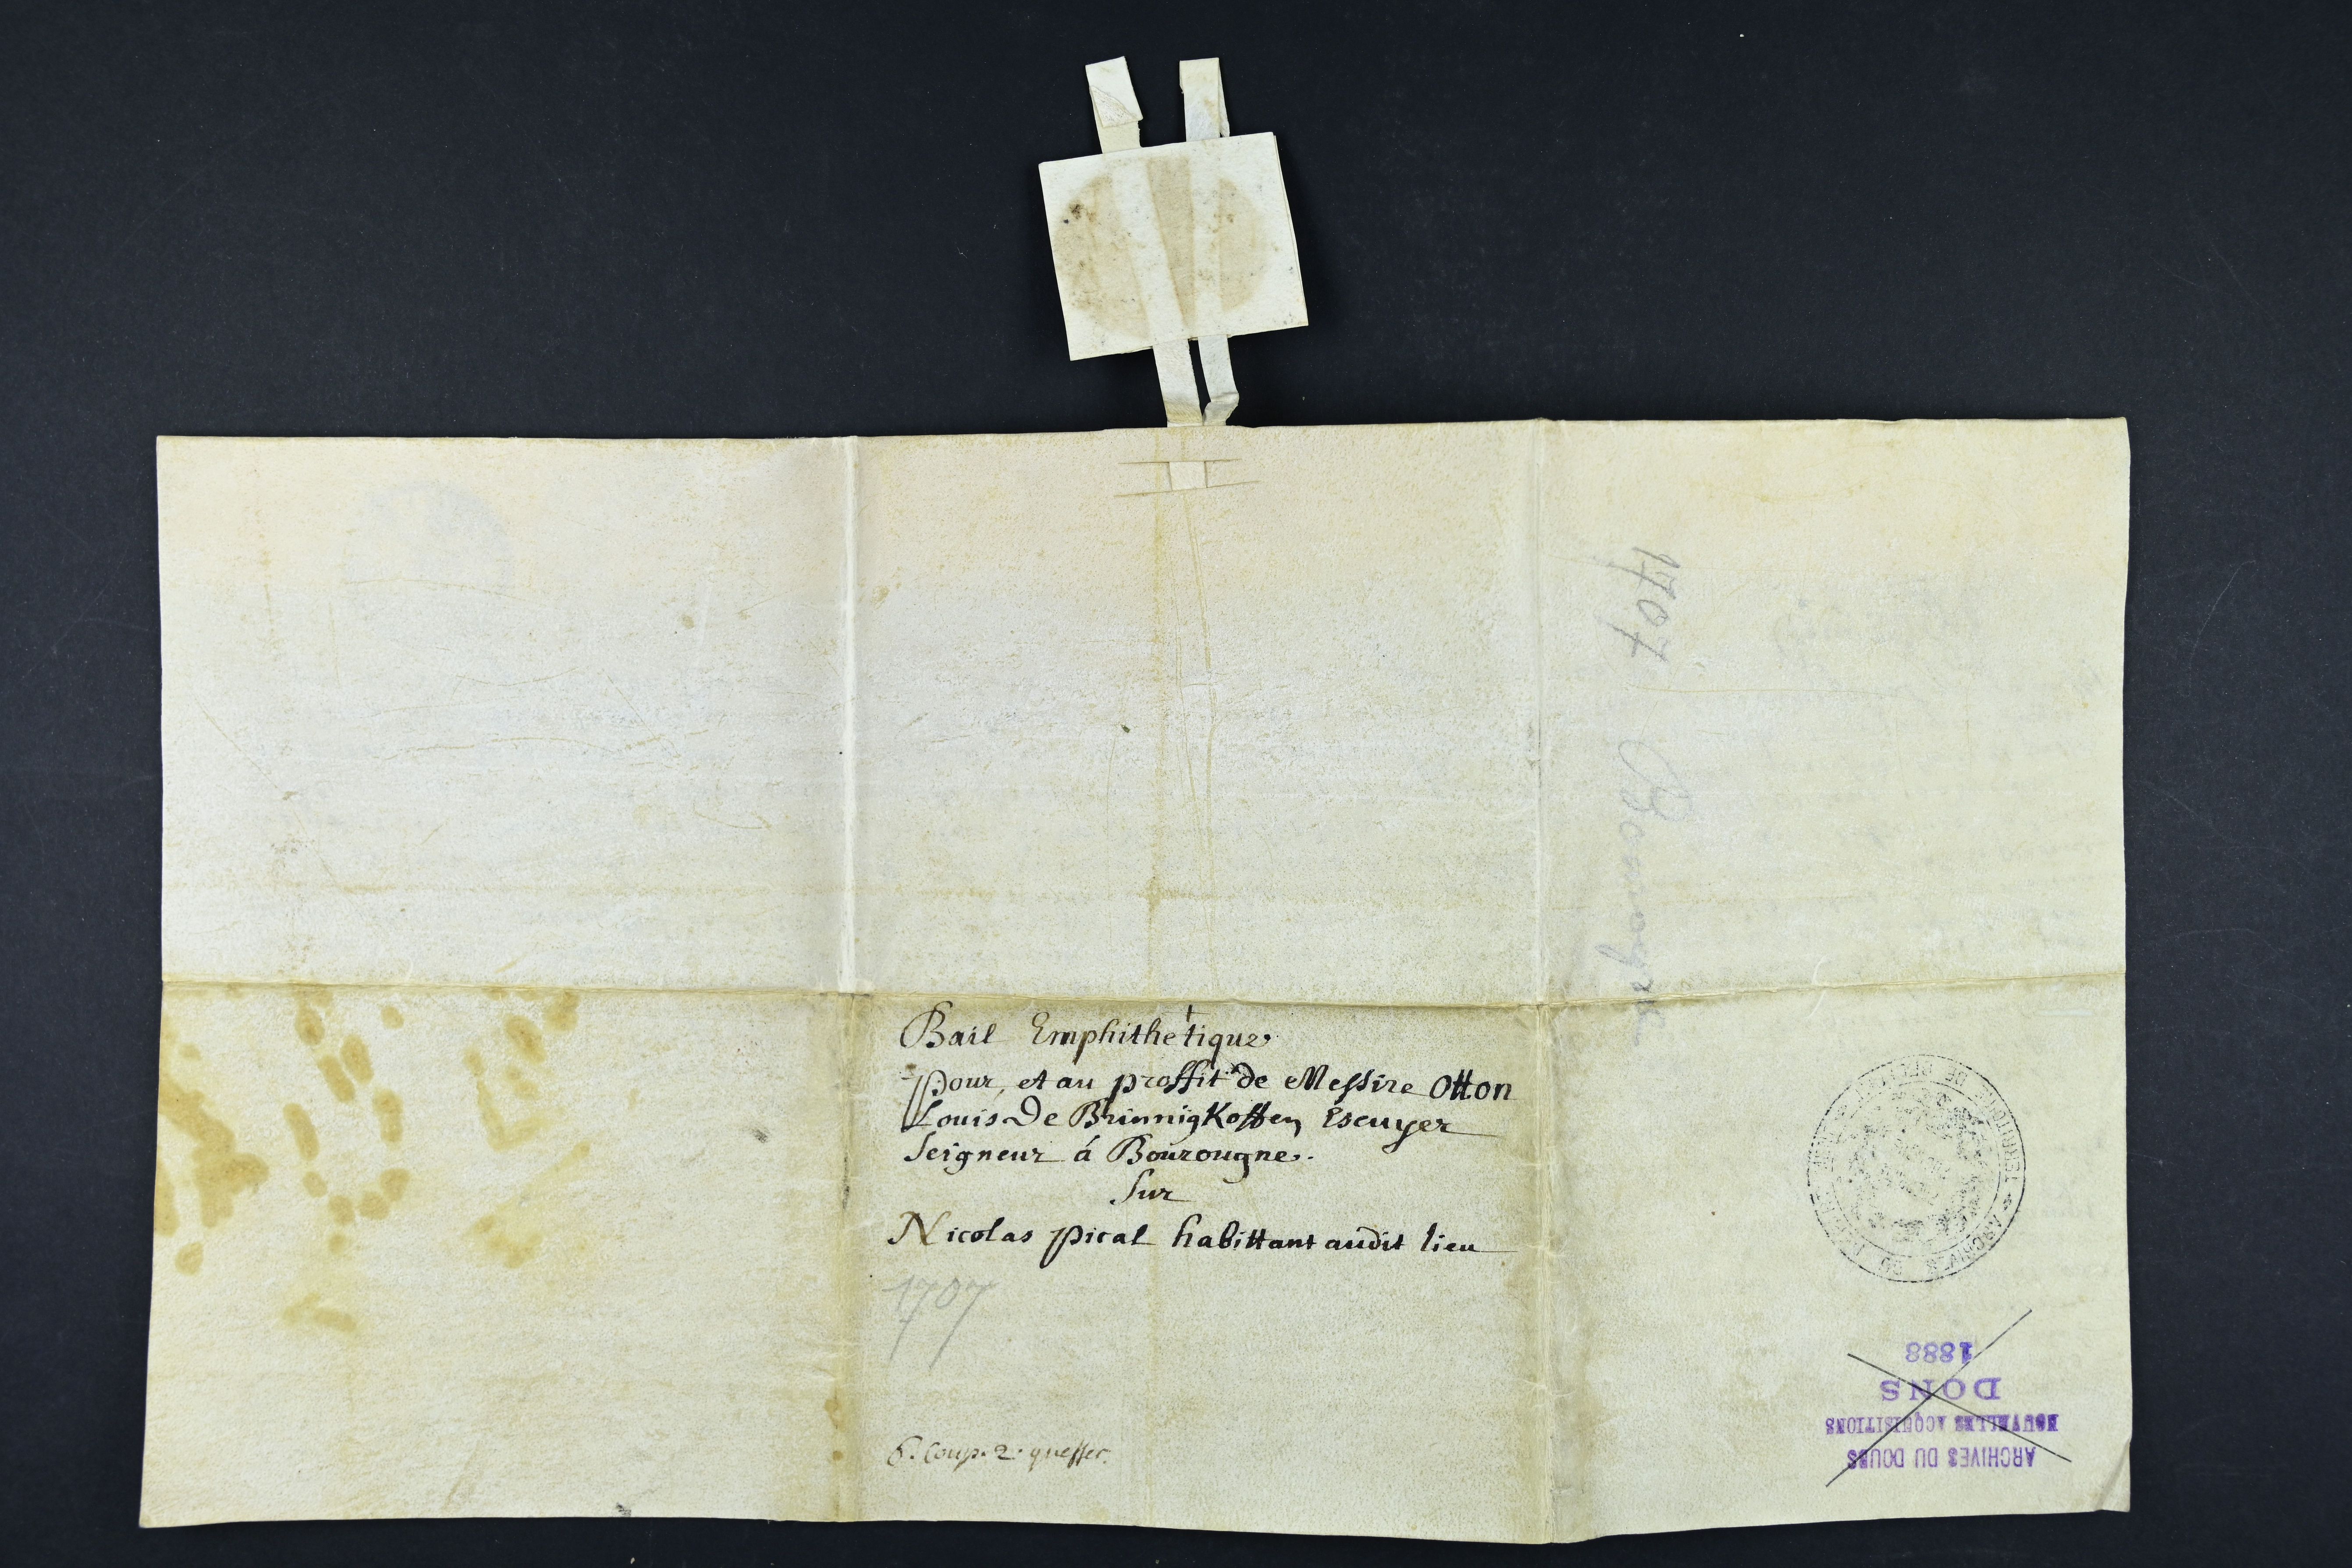 Bail Emphithétique
pour, et au proffit de Messire Otton
Louis De Brinnigkoffen Escuyer
Seigneur á Bourougne.
Sur
Nicolas pical habittant audit lieu
1707
6. Coup. 2. queffer.
1707 Bourogne
ARCHIVES DU DOUBS
NOUVELLES ACQUISITIONS
DONS
1888